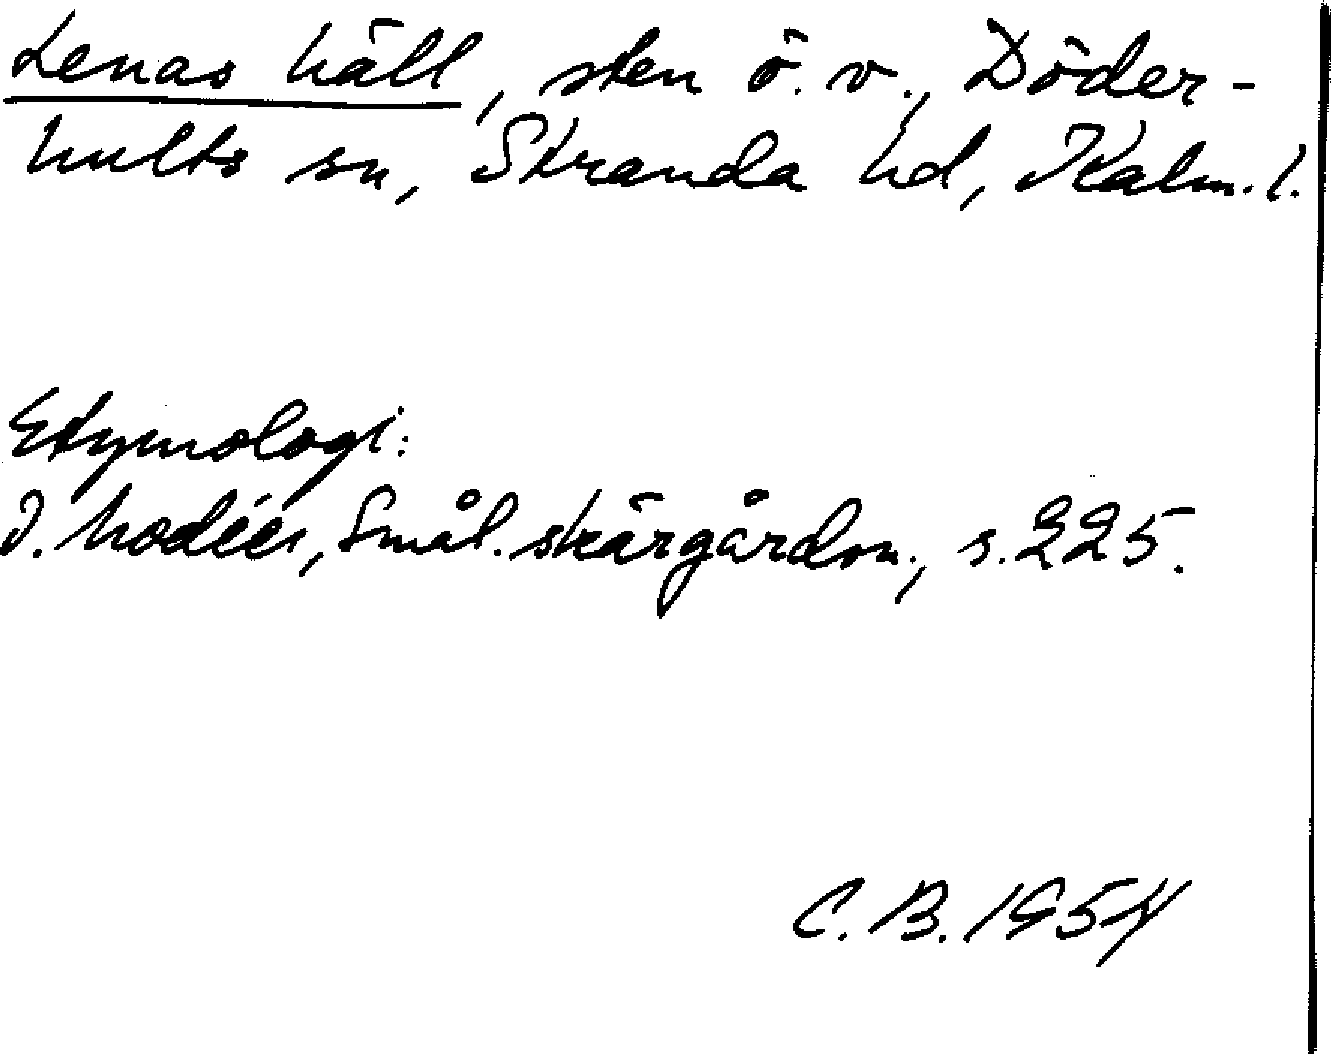 Lenas häll, sten ö. v., Döder-
hults sn, Stranda hd, Kalm. l.
Etymologi:
I. Modéer, Smål. skärgårdsn., s. 225.
C. B. 1954